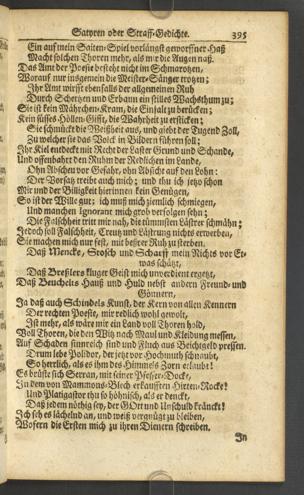 Satyren oder Straff-Gedichte. 395
Ein auf mein Saiten-Spiel vorlängst geworffner Haß
Macht solchen Thoren mehr, als mir die Augen naß.
Das Amt der Poesie besteht nicht im Schmarotzen,
Worauf nur insgemein die Meister-Sänger trotzen;
Ihr Amt wirfft ebenfalls der allgemeinen Ruh
Durch Schertzen und Erbaun ein stilles Wachsthum zu;
Sie ist kein Mährchen-Kram, die Einfalt zu berücken;
Kein süsses Höllen-Gifft, die Wahrheit zu ersticken;
Sie schmückt die Weißheit aus, und giebt der Tugend Zoll,
Zu welcher sie das Volck in Bildern führen soll;
Ihr Kiel entdeckt mit Recht der Laster Grund und Schande,
Und offenbahrt den Ruhm der Redlichen im Lande,
Ohn Abscheu vor Gefahr, ohn Absicht auf den Lohn:
Der Vorsatz treibt auch mich; und thu ich jetzo schon
Mir und der Billigkeit hierinnen kein Genügen,
So ist der Wille gut; ich muß mich ziemlich schmiegen,
Und manchen Ignorant mich grob verfolgen sehn;
Die Falschheit tritt mir nah, die tümmsten Lästrer schmähn;
Jedoch soll Falschheit, Creutz und Lästrung nichts erwerben,
Sie machen mich nur fest, mit beßrer Ruh zu sterben.
Daß Mencke, Strosch und Scharff mein Nichts vor Et-
was schätzt,
Daß Breßlers kluger Geist mich unverdient ergetzt,
Daß Beuchelts Hauß und Huld nebst andern Freund- und
Gönnern,
Ja daß auch Schindels Kunst, der Kern von allen Kennern
Der rechten Poesie, mir redlich wohl gewolt,
Ist mehr, als wäre mir ein Land voll Thoren hold,
Voll Thoren, die den Witz nach Maul und Kleidung messen,
Auf Schaden sinnreich sind und Fluch aus Beichtgeld pressen.
Drum lebe Polidor, der jetzt vor Hochmuth schnaubt,
So herrlich, als es ihm des Himmels Zorn erlaubt!
Es brüste sich Serran, mit seiner Pfeffer-Docke,
In dem von Mammons-Blech erkaufften Hirten-Rocke!
Und Platigastor thu so höhnisch, als er denckt,
Daß jedem nöthig sey, der GOtt und Unschuld kränckt!
Ich seh es lächelnd an, und weiß vergnügt zu bleiben,
Wofern die Ersten mich zu ihren Dienern schreiben.
In